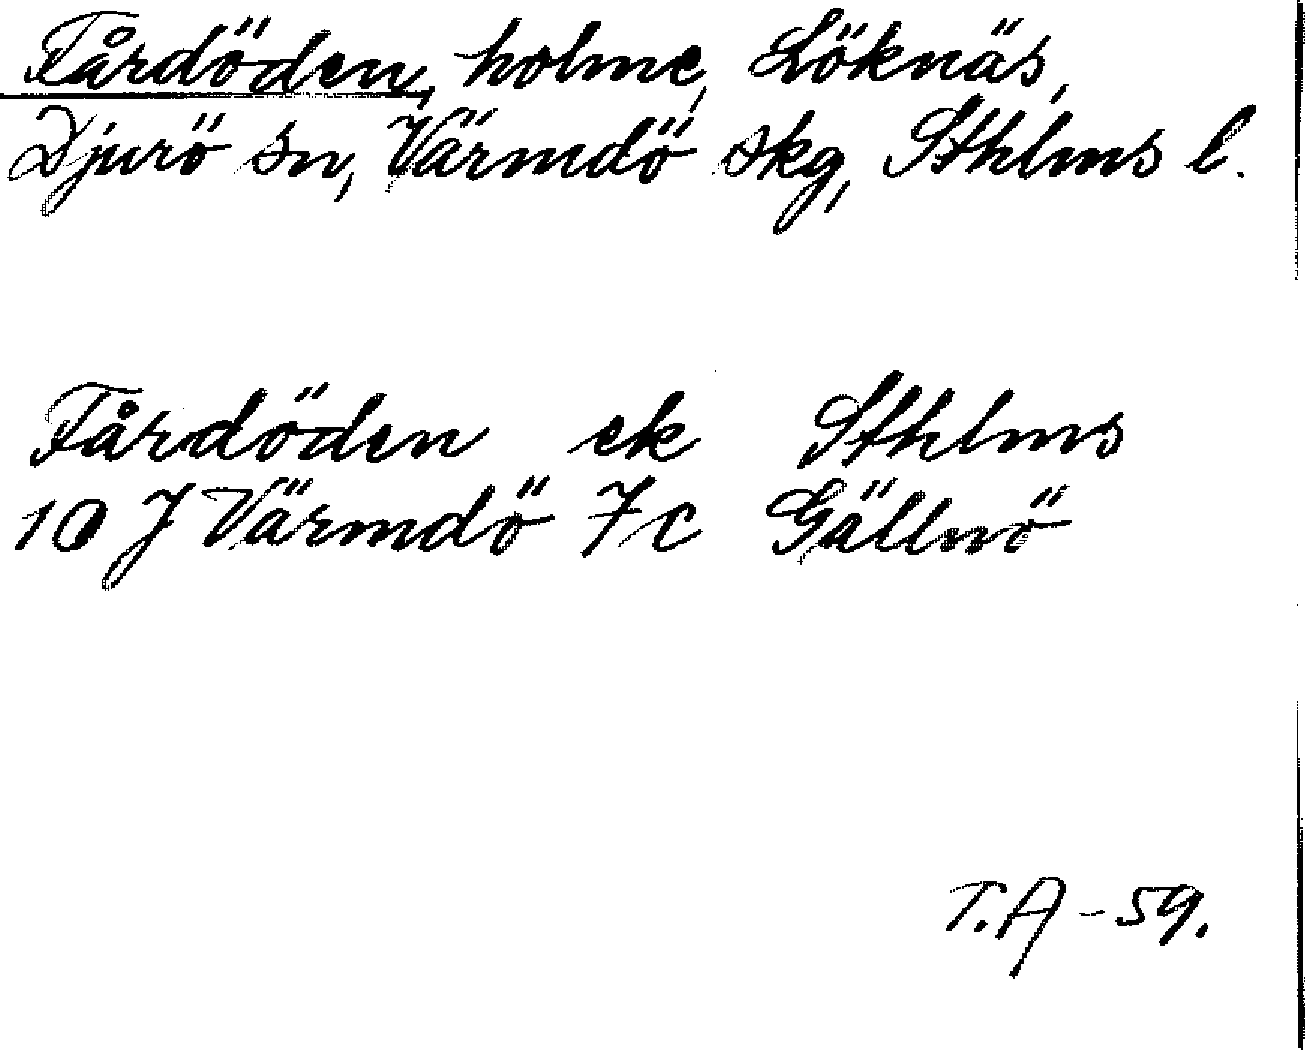 Fårdöden, holme, Löknäs,
Djurö sn, Värmdö skg, Sthlms l.
Fårdöden ek Sthlms
10 J Värmdö 7c Gällnö
T.A -59.